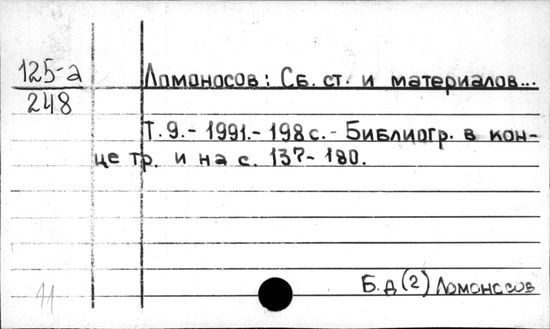 125-а
248
Ломоносов: Сб. ст. и материалов...
Т. 9. - 1991. - 198 с. - Библиогр. в кон-
це тр. и на с. 137-180.
11
Б. д (2) Ломоносов